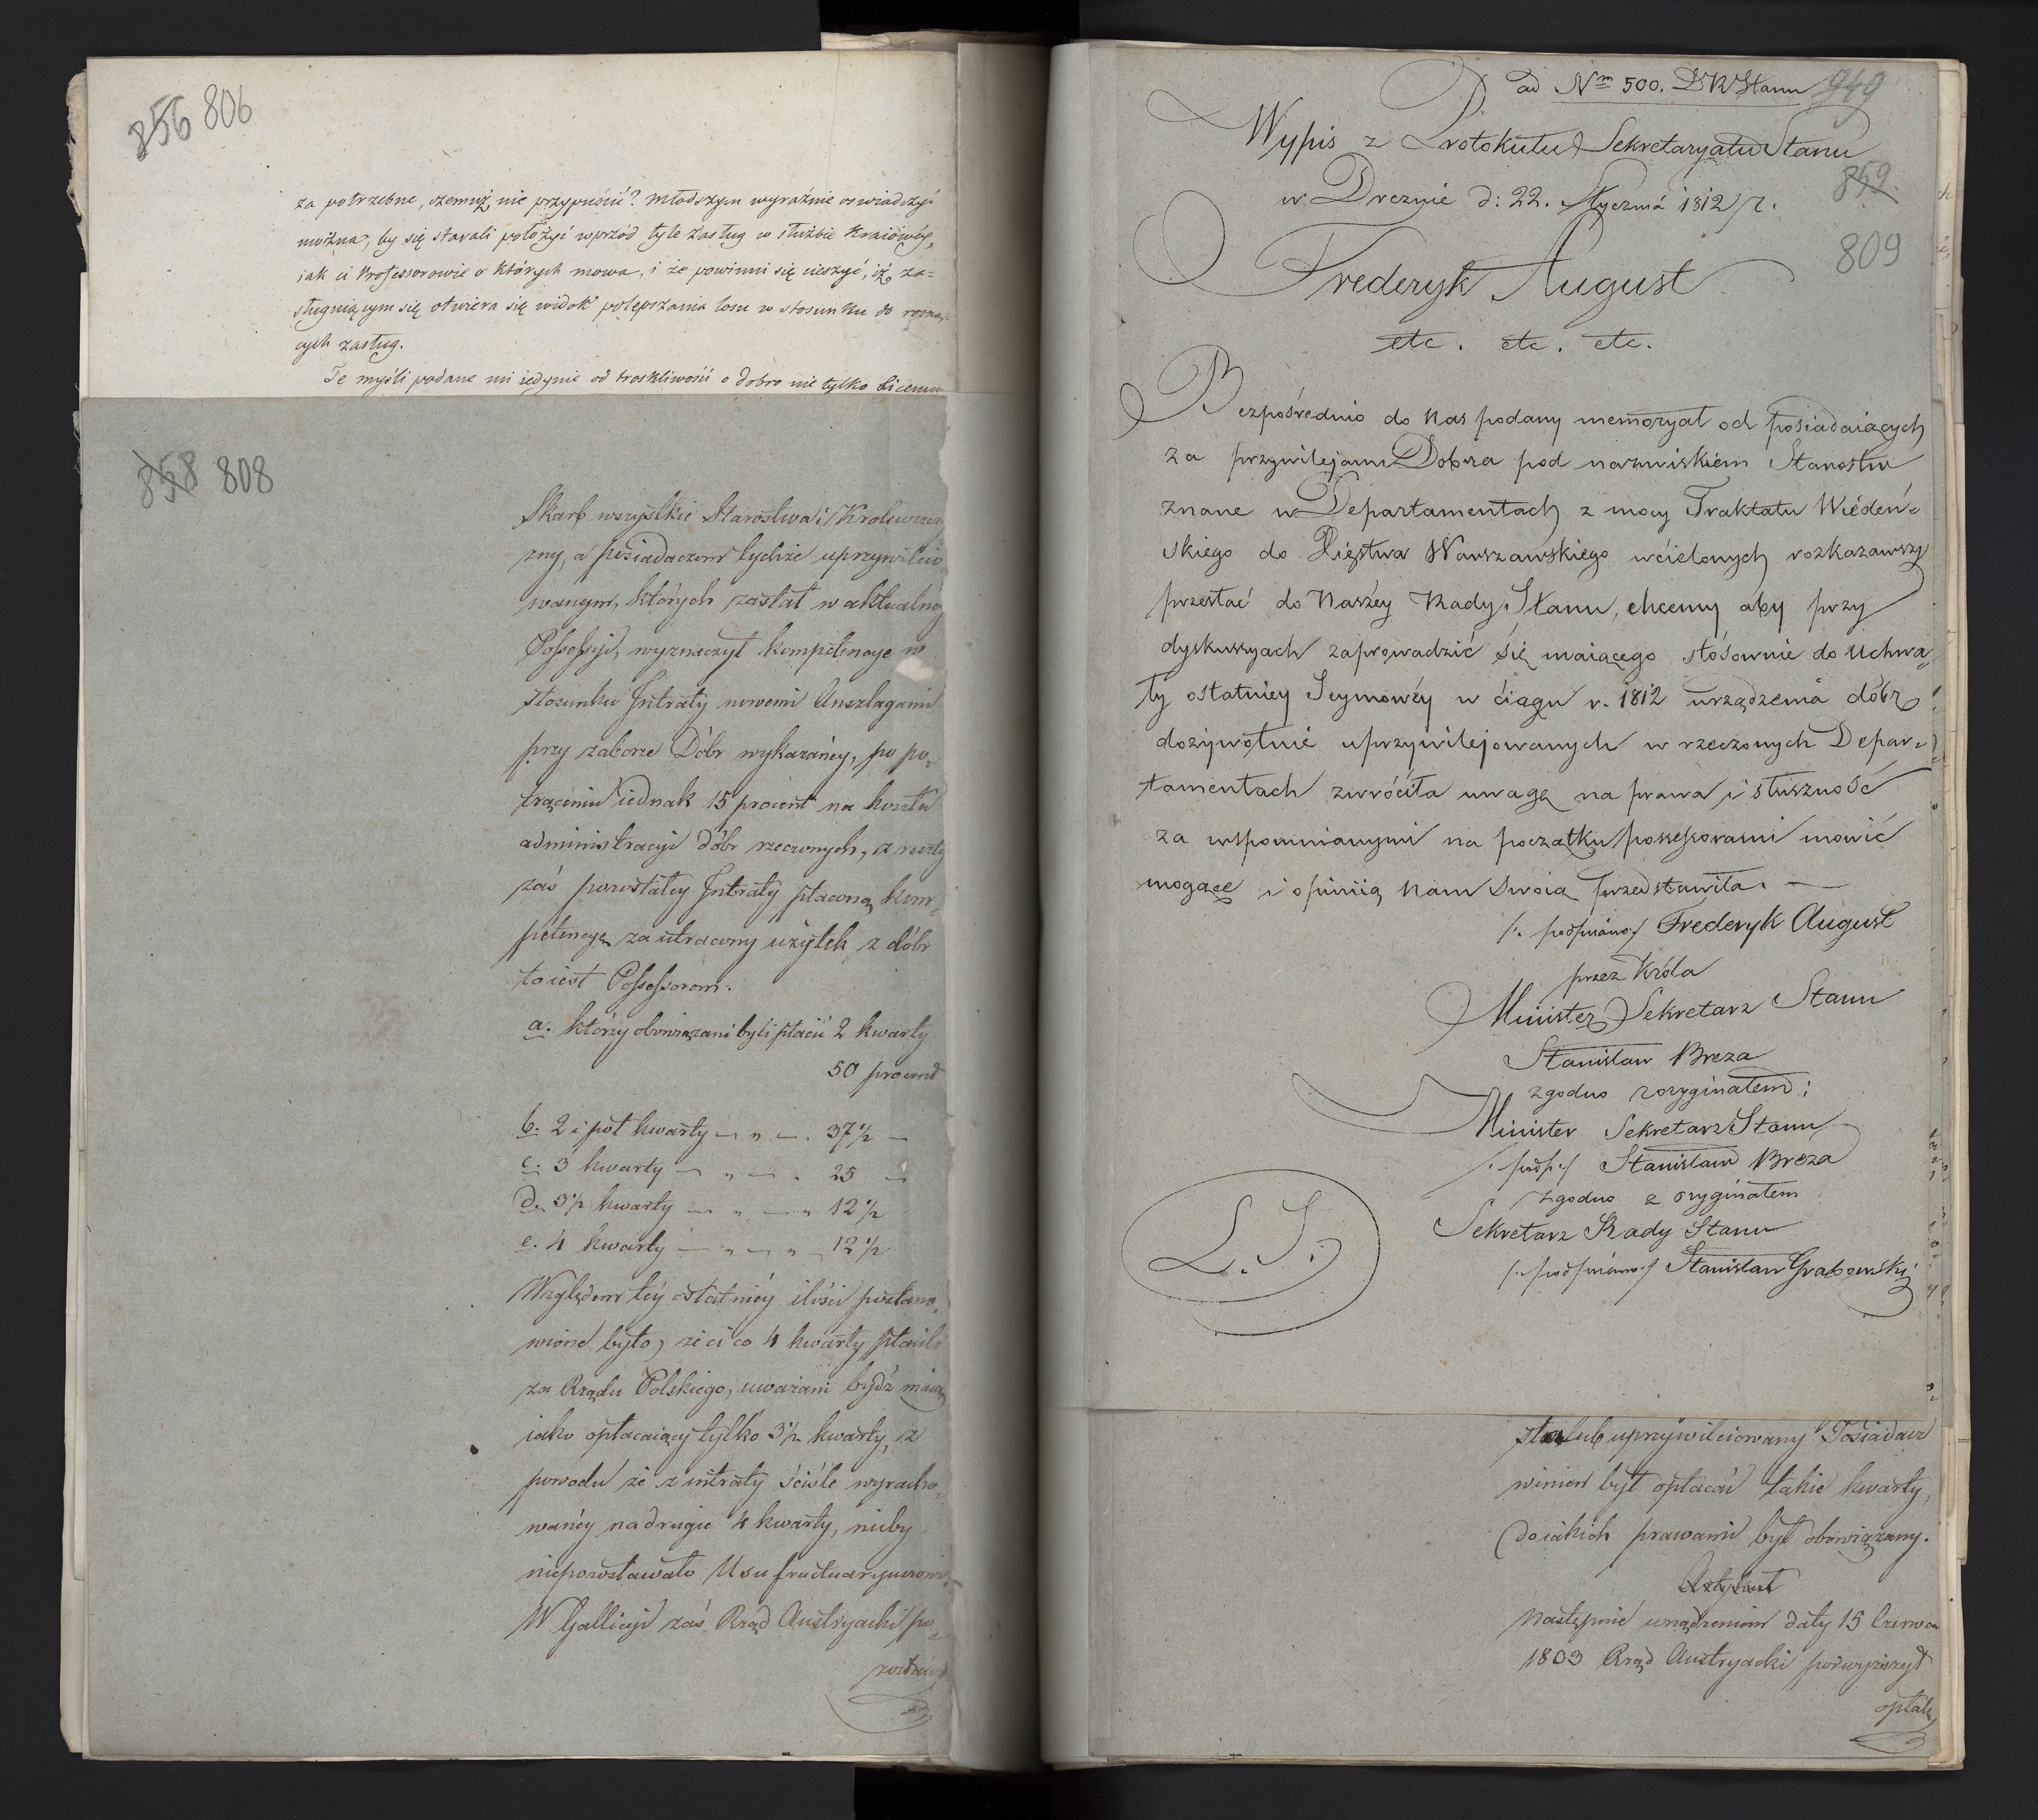 856 806
za potrzebne, czemuż nie przypuścić? Młodszym wyraźnie oświadczyć
można, by się starali położyć wprzód tyle zasług w służbie Kraiowéy,
iak ci Professorowie o których mowa, i że powinni się cieszyć, iż za=
sługuiącym się otwiera się widok polepszania losu w stosunku do rosną=
cych zasług.
Te myśli podane mi iedynie od troskliwości o dobro nie tylko Liceum
858 808
Skarb wszystkie Starostwa i Krolewszcz
zny, a posiadaczom tychże uprzywileio
wanym, których zastał w aktualnéy
Possessyi, wyznaczył kompetencye w
stosunku Intraty nowemi Anszlagami
przy zaborze Dóbr wykazanéy, po po=
trąceniu iednak 15 procent na koszta
administracyi dóbr rzeczonych, z reszty
zaś pozostałéy Intraty płacona kom=
petencya za utracony użytek z dóbr
to iest Possessorom.
a. którzy obowiązani byli płacić 2 kwarty
50 procent
b. 2 i pół kwarty — „ — . 37 1/2 —
c. 3 kwarty — „ — . 25 —
d. 3 1/2 kwarty — „ — „ 12 1/2
e. 4 kwarty — „ — „ — 12 1/2
Względem téy ostatniéy ilości postano=
wione było, że ci co 4 kwarty płacili
za Rządu Polskiego, uważani bydź maią
iako opłacaiący tylko 3 1/2 kwarty, z
powodu że z intraty ściśle wyracho=
wanéy na drugie 4 kwarty, nicby
niepozostawało Usufructuaryuszowi.
W Gallicyi zaś Rząd Austryacki po=
zostawił
ad Nm 500. D R Stanu 949
Wypis z Protokułu Sekretaryatu Stanu
w Dreznie d: 22. Stycznia 1812 r.
859
809
Frederyk August
etc. etc. etc.
Bezpośrednio do Nas podany memoryał od posiadaiących
za przywilejami Dobra pod nazwiskiem Starostw
znane w Departamentach z mocy Traktatu Wiédeń=
skiego do Xięstwa Warszawskiego wcielonych rozkazawszy
przesłać do Naszéy Rady Stanu, chcemy aby przy
dyskussyach zaprowadzić się maiącego stósownie do Uchwa=
ły ostatniey Seymowéy w ciągu r. 1812 urządzenia dóbr
dożywotnie uprzywilejowanych w rzeczonych Depar=
tamentach zwróciła uwagę na prawa i słuszność
za wspomnianymi na początku possessorami mowić
mogące i opinią Nam swoią przedstawiła. —
/: podpisano :/ Frederyk August
przez Króla
Minister Sekretarz Stanu
Stanisław Breza
zgodno z oryginałem:
Minister Sekretarz Stanu
/: podp: :/ Stanisław Breza
zgodno z oryginałem
Sekretarz Rady Stanu
/: podpisano :/ Stanisław Grabowski
L. S.
sta lub uprzywileiowany Posiadacz
winien był opłacać takie kwarty,
do iakich prawami był obowiązany.
Następnie urządzeniem daty 15 Czerwca
1803 Rząd Austryacki podwyższył
opłatę